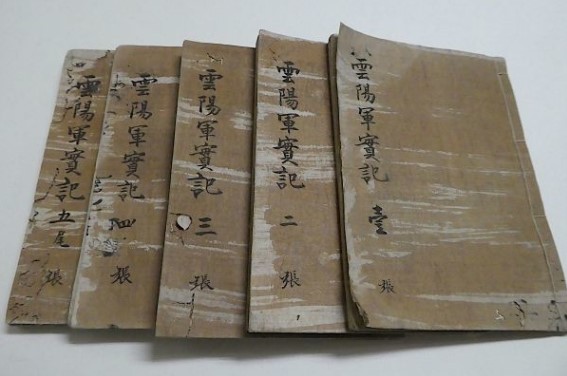 雲陽軍實記 壹
張
雲陽軍實記 二
張
雲陽軍實記 三
張
雲陽軍實記 四
張
雲陽軍實記 五尾
張